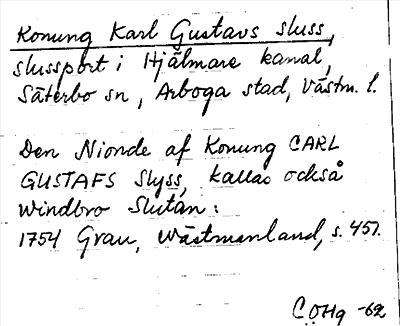 Konung Karl Gustavs sluss,
slussport i Hjälmare kanal,
Säterbo sn, Arboga stad, Västm. l.
Den Nionde af Konung CARL
GUSTAFS Slyss, kallas också
Windbro Slutan:
1754 Grau, Wästmanland, s. 457.
C ÖHg -62